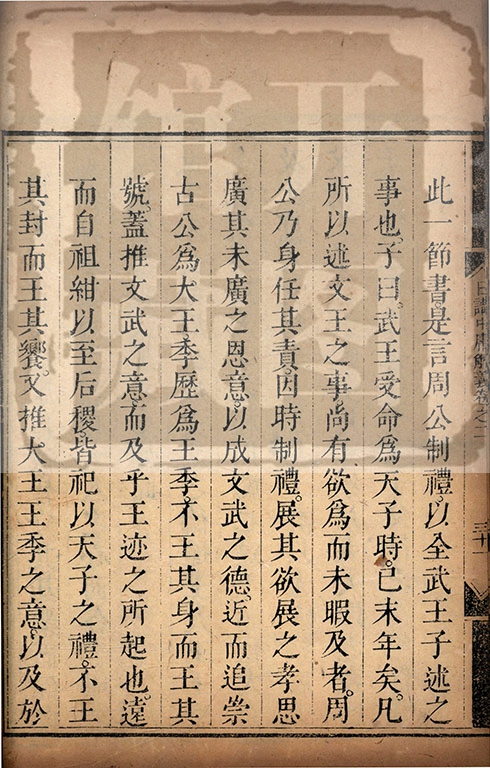 此一節書是言周公制禮以全武王子述之
事也子曰武王受命為天子時已末年矣凡
所以述文王之事尚有欲為而未暇及者周
公乃身任其責因時制禮展其欲展之孝思
廣其未廣之恩意以成文武之德近而追崇
古公為大王季歷為王季不王其身而王其
號蓋推文武之意而及乎王迹之所起也遠
而自祖紺以至后稷皆祀以天子之禮不王
其封而王其饗又推大王王季之意以及於